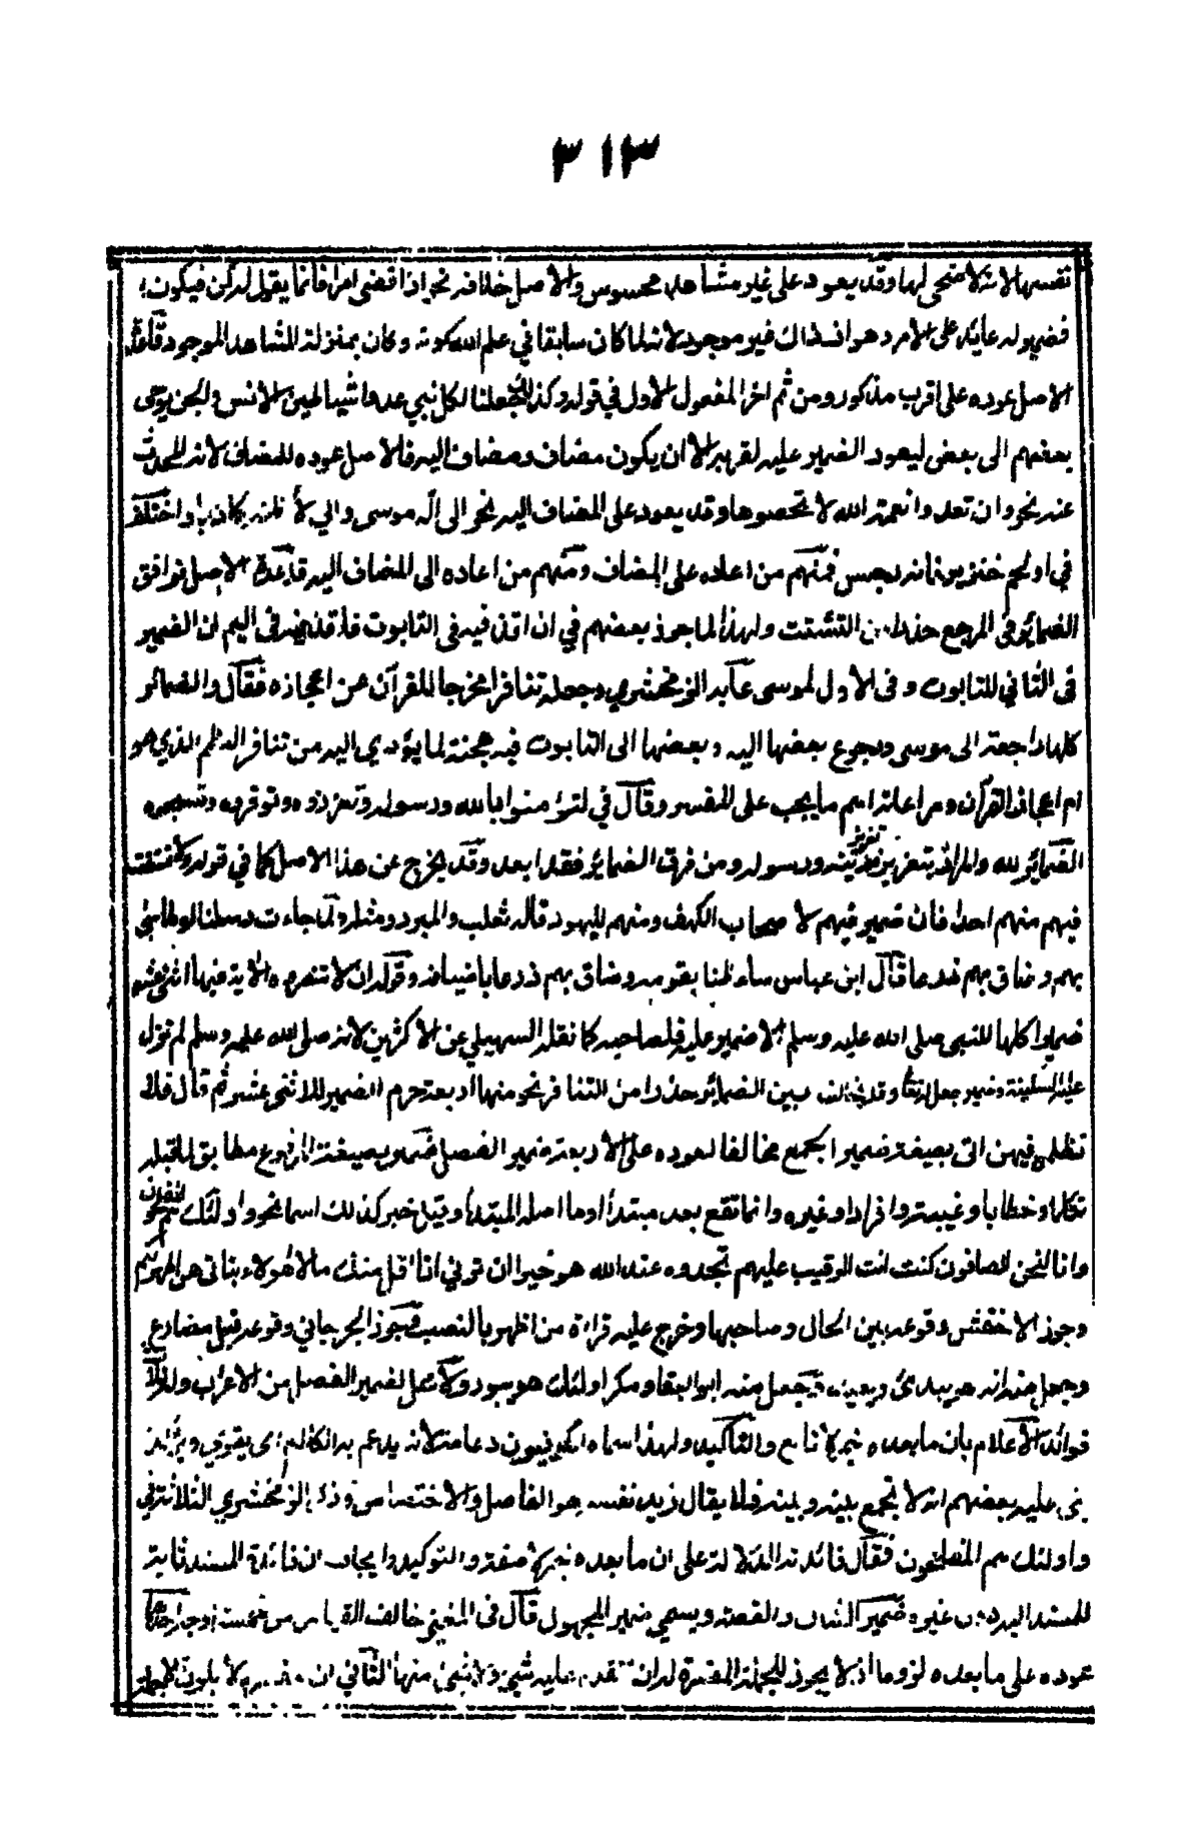 ٣١٣
نفسها لانه لا ضحى لها وقد يعود على غير مشاهد محسوس والاصل خلافه نحو اذا قضى امرا فانما يقول له كن فيكون
فضمير له عائد على الامر وهو اذ ذاك غير موجود لانه لما كان سابقا في علم الله كونه وكان بمنزلة المشاهد الموجود قاعدة
الاصل عوده على اقرب مذكور ومن ثم اخر المفعول الاول في قوله وكذلك جعلنا لكل نبي عدوا شياطين الانس والجن يوحي
بعضهم الى بعض ليعود الضمير عليه لقربه الا ان يكون مضاف ومضاف اليه فالاصل عوده للمضاف لانه المحدث
عنه نحو وان تعدوا نعمة الله لا تحصوها وقد يعود على المضاف اليه نحو الى اله موسى واني لأظنه كاذبا واختلف
في او لحم خنزير فانه رجس فمنهم من اعاده على المضاف ومنهم من اعاده الى المضاف اليه قاعدة الاصل توافق
الضمائر في المرجع حذرا من التشتت ولهذا لما جوز بعضهم في ان اقذفيه في التابوت فاقذفيه في اليم ان الضمير
في الثاني للتابوت وفي الاول لموسى عابه الزمخشري وجعله تنافرا مخرجا للقرآن عن اعجازه فقال والضمائر
كلها راجعة الى موسى ورجوع بعضها اليه وبعضها الى التابوت فيه هجنة لما يؤدي اليه من تنافر النظم الذي هو
ام اعجاز القرآن ومراعاته اهم ما يجب على المفسر وقال في لتؤمنوا بالله ورسوله وتعزروه وتوقروه وتسبحوه
الضمائر لله والمراد بتعزيره تعزير دينه ورسوله ومن فرق الضمائر فقد ابعد وقد يخرج عن هذا الاصل كما في قوله ولا تستفت
فيهم منهم احدا فان ضمير فيهم لاصحاب الكهف ومنهم لليهود قاله ثعلب والمبرد ومثله ولما جاءت رسلنا لوطا سئ
بهم وضاق بهم ذرعا قال ابن عباس ساء ظنا بقومه وضاق بهم ذرعا باضيافه وقوله ان لا تنصروه الاية فيها اثنى عشر
ضميرا كلها للنبي صلى الله عليه وسلم الا ضمير عليه فلصاحبه كما نقله السهيلي عن الاكثرين لانه صلى الله عليه وسلم لم تنزل
عليه السكينة وضمير جعل له تعا وقد يخالف بين الضمائر حذرا من التنافر نحو منها اربعة حرم الضمير للاثنى عشر ثم قال فلا
تظلموا فيهن اتى بصيغة ضمير الجمع مخالفا لعوده على الاربعة ضمير الفصل ضمير بصيغة المرفوع مطابق لما قبله
تكلما وخطابا وغيبة وافرادا وغيره وانما تقع بعد مبتدأ او ما اصله المبتدأ وقبل خبر كذلك اسما نحو واولئك هم المفلحون
وانا لنحن الصافون كنت انت الرقيب عليهم تجدوه عند الله هو خيرا ان ترني انا اقل منك مالا هؤلاء بناتي هن اطهر لكم
وجوز الاخفش وقوعه بين الحال وصاحبها وخرج عليه قراءة من اظهر بالنصب وجوز الجرجاني وقوعه قبل مضارع
وجعل منه انه هو يبدئ ويعيد وجعل منه ابو البقا ومكر اولئك هو يبور ولا محل لضمير الفصل من الاعراب وله ثلاثة
فوائد الاعلام بان ما بعده خبر لا تابع والتاكيد ولهذا سماه الكوفيون دعامة لانه يدعم به الكلام اى يقوى ويؤكد
بنى عليه بعضهم انه لا يجمع بينه وبينه فلا يقال زيد نفسه هو الفاضل والاختصاص وذكر الزمخشري الثلاثة في
واولئك هم المفلحون فقال فائدته الدلالة على ان ما بعده خبر لا صفة والتوكيد وايجاب ان فائدة المسند ثابتة
للمسند اليه دون غيره ضمير الشان والقصة ويسمى ضمير المجهول قال في المغني خالف القياس من خمسة اوجه احدها
عوده على ما بعده لزوما اذ لا يجوز للجملة المفسرة له ان تتقدم عليه ولا شئ منها الثاني ان مفسره لا يكون الا جملة